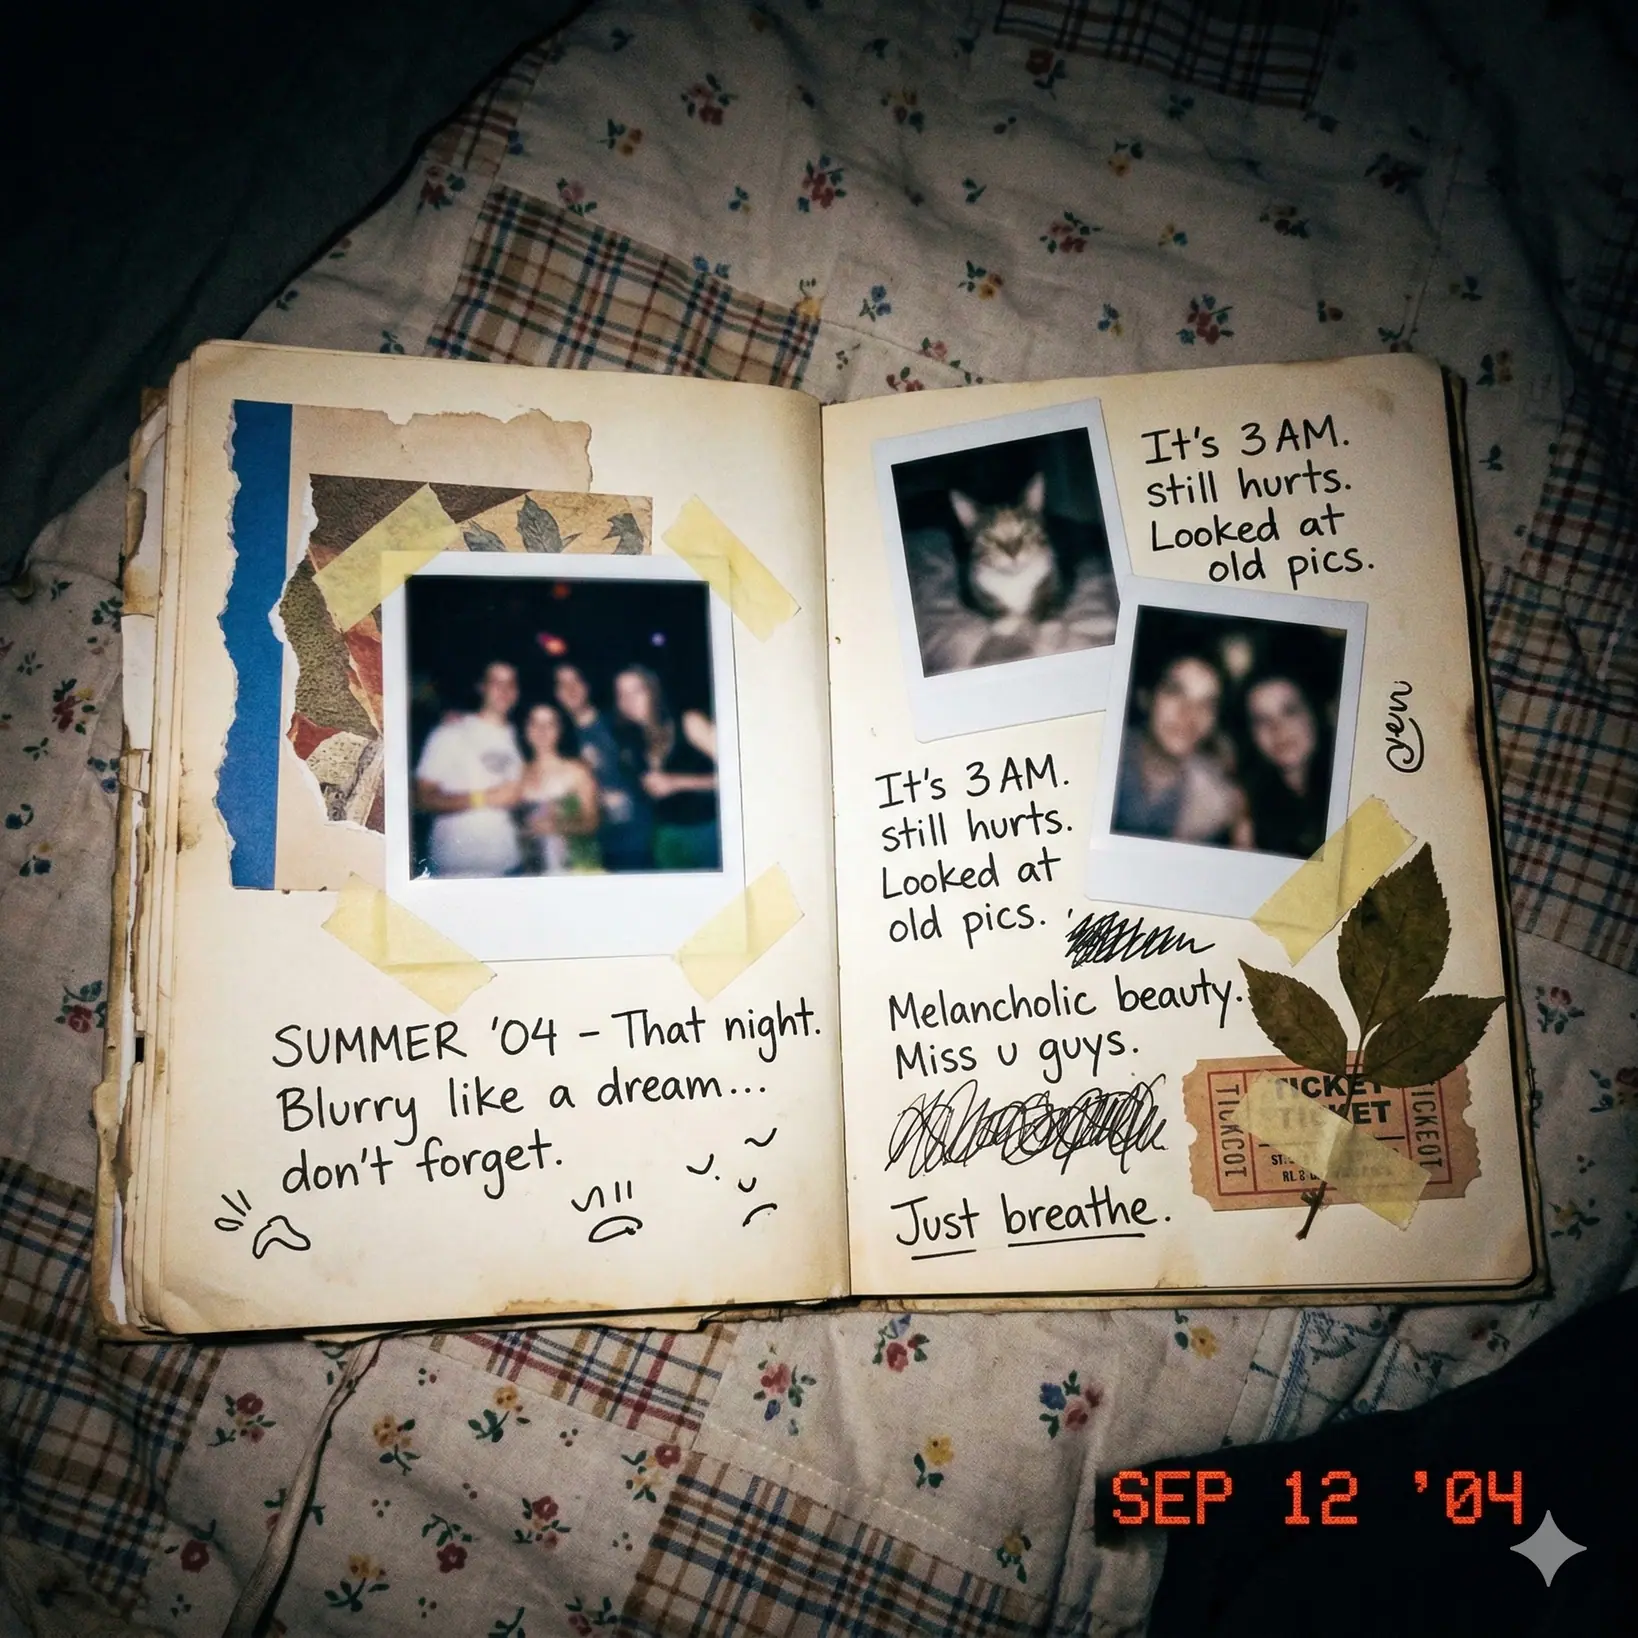 SUMMER '04 – That night.
Blurry like a dream...
don't forget.
It's 3 AM.
still hurts.
Looked at
old pics.
It's 3 AM.
still hurts.
Looked at
old pics.
Melancholic beauty.
Miss u guys.
Just breathe.
TICKET
TICKET
SEP 12 '04